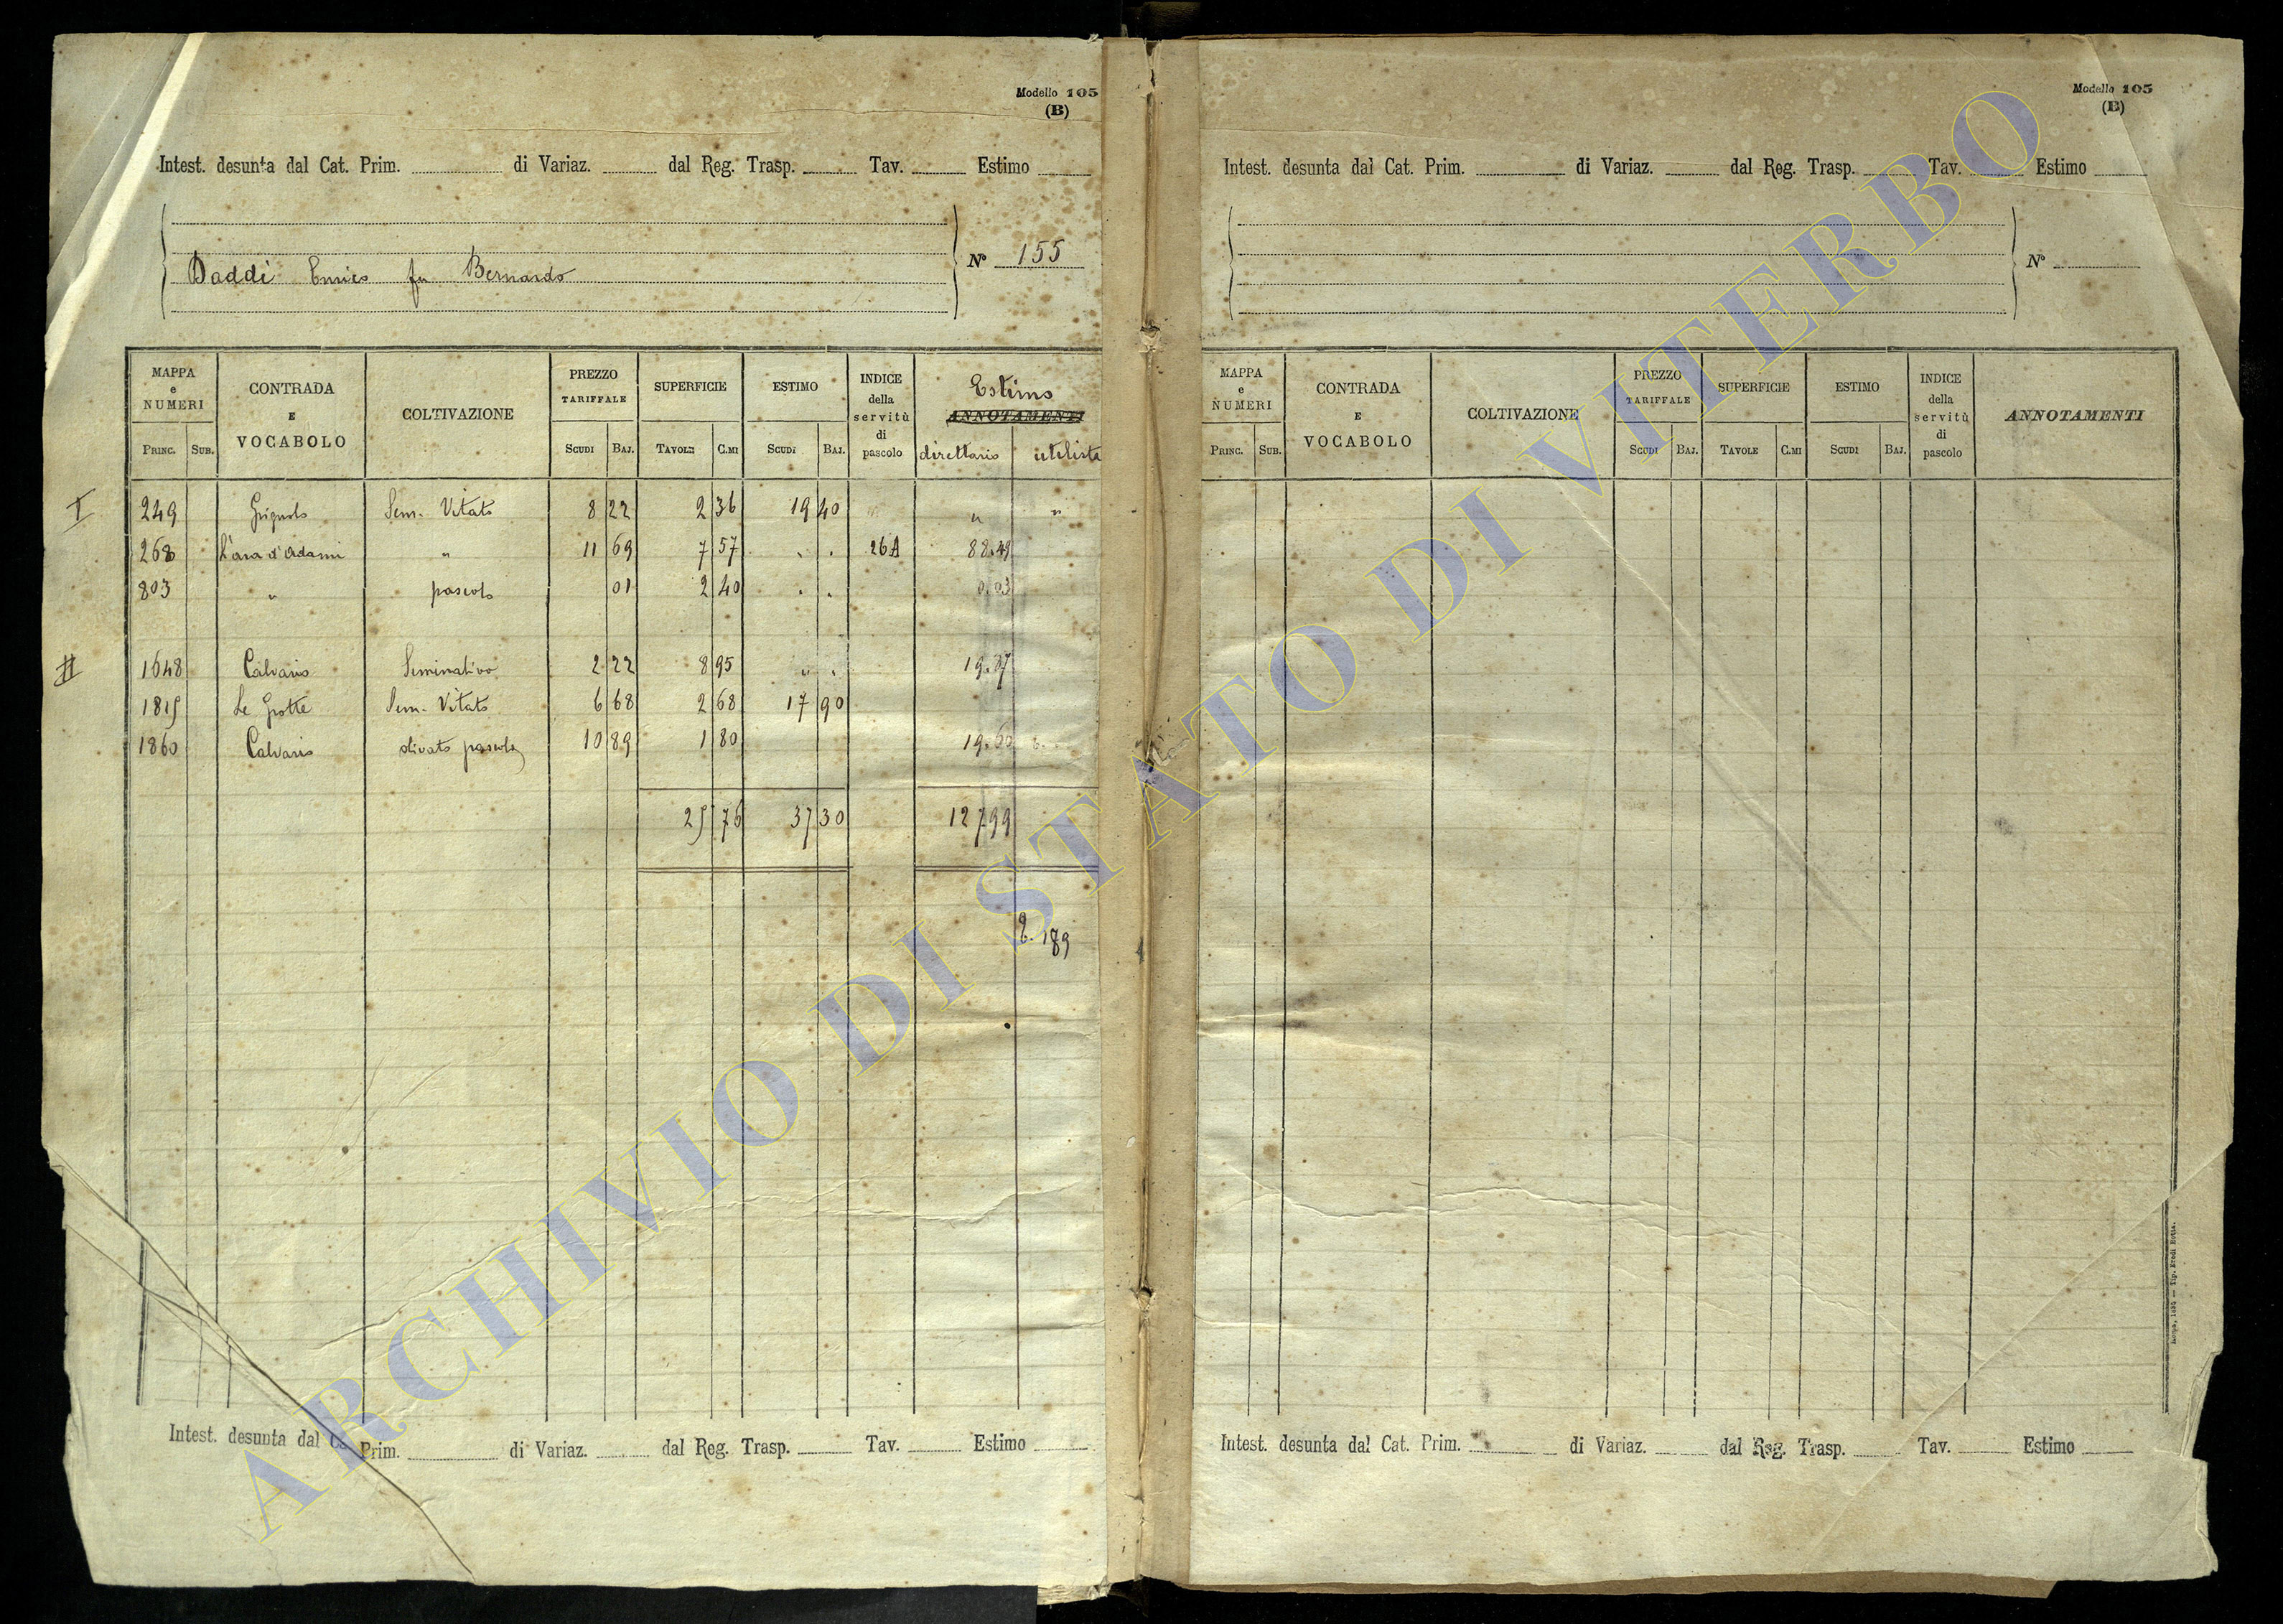 Modello 105
(B)
Intest. desunta dal Cat. Prim. di Variaz. dal Reg. Trasp. Tav. Estimo
Daddi Enrico fu Bernardo
N° 155
MAPPA e NUMERI
PRINC. SUB.
CONTRADA E VOCABOLO
COLTIVAZIONE
PREZZO TARIFFALE
SCUDI BAJ.
SUPERFICIE
TAVOLE C.MI
ESTIMO
SCUDI BAJ.
INDICE della servitù di pascolo
Estimo
ANNOTAMENTI
direttario utilista
I 249 Grignolo Sem. Vitato 8 22 2 36 19 40 " "
268 L'ara d'Adami " 11 69 7 57 " " 26A 88.49
803 " pascolo 01 2 40 " " 0.03
II 1648 Calvario Seminativo 2 22 8 95 " " 19.87
1815 Le Grotte Sem. Vitato 6 68 2 68 17 90
1860 Calvario olivato pascolo 10 89 1 80 19.60
25 76 37 30 127.99
189
Intest. desunta dal Ca Prim. di Variaz. dal Reg. Trasp. Tav. Estimo
Modello 105
(B)
Intest. desunta dal Cat. Prim. di Variaz. dal Reg. Trasp. Tav. Estimo
N°
MAPPA e NUMERI
PRINC. SUB.
CONTRADA E VOCABOLO
COLTIVAZIONE
PREZZO TARIFFALE
SCUDI BAJ.
SUPERFICIE
TAVOLE C.MI
ESTIMO
SCUDI BAJ.
INDICE della servitù di pascolo
ANNOTAMENTI
Intest. desunta dal Cat. Prim. di Variaz. dal Reg. Trasp. Tav. Estimo
ARCHIVIO DI STATO DI VITERBO